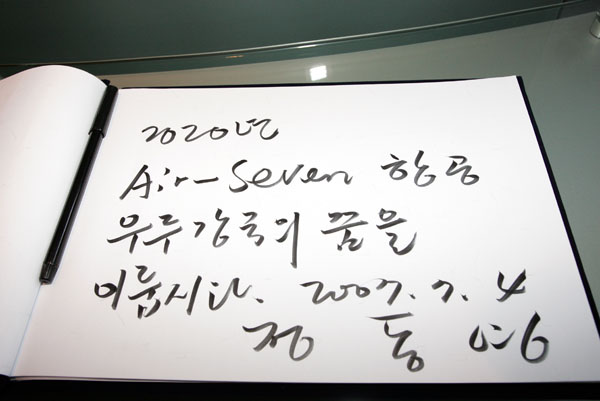 2020년
Air-Seven 항공
우주강국의 꿈을
이룹시다. 2007. 7. 4
정 동 영